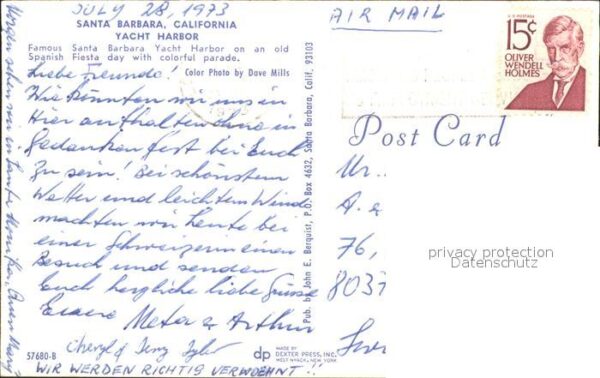 JULY 28, 1973
SANTA BARBARA, CALIFORNIA
YACHT HARBOR
Famous Santa Barbara Yacht Harbor on an old
Spanish Fiesta day with colorful parade.
Color Photo by Dave Mills
Liebe Freunde!
Wie könnten wir uns in
hier aufhalten ohne in
Gedanken fest bei Euch
zu sein! Bei schönstem
Wetter und leichtem Wind
machten wir heute bei
einer Schweizerin einen
Besuch und senden
Euch herzliche liebe Grüsse
Eure Meta & Arthur
Cheryl & Terry
WIR WERDEN RICHTIG VERWÖHNT!!
57680-B
Morgen sehen wir in Santa Monika, Queen Mary
Pub. by John E. Berquist, P.O. Box 4632, Santa Barbara, Calif. 93103
dp
MADE BY
DEXTER PRESS, INC.
WEST NYACK, NEW YORK
AIR MAIL
U.S. POSTAGE
15¢
OLIVER
WENDELL
HOLMES
Post Card
76,
8037
privacy protection
Datenschutz